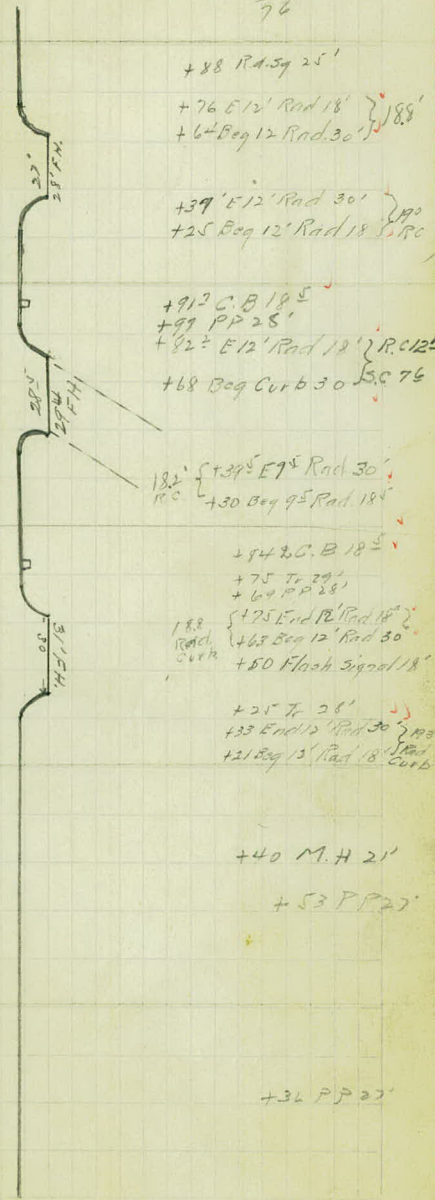 76
+88 Rd. Sq 25'
+76 E 12' Rad 18' } 18.8'
+64 Beg 12 Rad. 30'
+39 E 12' Rad 30' } 19⁰
+25 Beg 12' Rad 18 R.C
+91² C.B 18⁵
+99 PP 28'
+82² E 12' Rad 18' } R.C 12⁵
+68 Beg Curb 30 S.C 7⁶
18.2' { +39⁵ E 9⁵ Rad 30'
R.C. +30 Beg 9⁵ Rad. 18⁵
+94 C.B 18⁵
+75 Tr 29'
+69 PP 28'
18.8 { +75 End 12' Rad 18'
Rad. +63 Beg 12' Rad 30'
Curb +50 Flash Signal 18'
+25 Tr 28'
+33 End 12' Rad 30' } 19³
+21 Beg 12' Rad 18' Rad
Curb
+40 M.H 21'
+53 PP 27'
+36 PP 27'
28' F.H.
28⁵
F.H.
31' F.H.
30